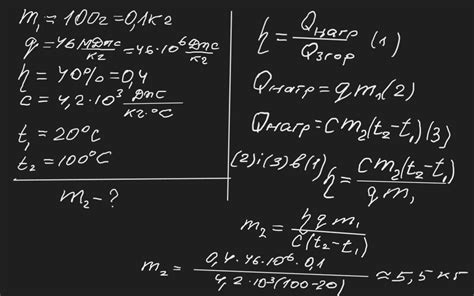 m₁ = 100г = 0,1кг
q = 46 МДж/кг = 46·10⁶ Дж/кг
η = 40% = 0,4
c = 4,2·10³ Дж/кг·°C
t₁ = 20°C
t₂ = 100°C
m₂ - ?
η = Qнагр/Qзгор (1)
Qнагр = qm₁(2)
Qнагр = cm₂(t₂-t₁)(3)
(2)і(3)в(1) η = cm₂(t₂-t₁)/qm₁
m₂ = ηqm₁/c(t₂-t₁)
m₂ = 0,4·46·10⁶·0,1/4,2·10³(100-20) ≈ 5,5 кг